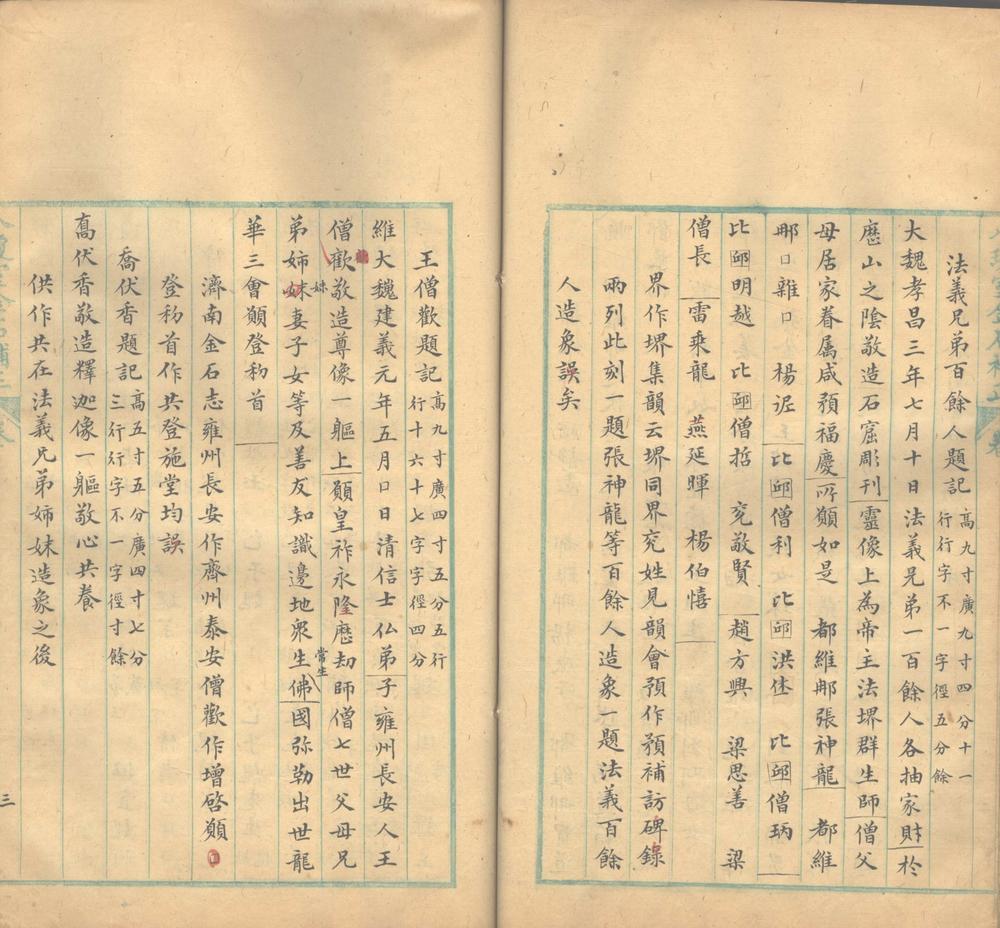 法義兄弟百餘人題記高九寸廣九寸四分十一
行行字不一字徑五分餘
大魏孝昌三年七月十日法義兄弟一百餘人各抽家財於
歷山之陰敬造石窟彫刊靈像上為帝主法堺群生師僧父
母居家眷属咸預福慶所願如是 都維䣋張神龍 都維
䣋口雜口 楊泥 比邱僧利 比邱洪 比邱僧炳
比邱明越 比邱僧哲 兖敬賢 趙方興 梁思善 梁
僧長 雷乘龍 燕延暉 楊伯憘
界作堺集韻云堺同界兖姓見韻會預作預補訪碑錄
兩列此刻一題張神龍等百餘人造象一題法義百餘
人造象誤矣
王僧歡題記高九寸廣四寸五分五行
行十六十七字字徑四分
維大魏建義元年五月口日清信士仏弟子雍州長安人王
僧歡敬造尊像一軀上願皇祚永隆歷劫師僧七世父母兄
弟姉妹妹妻子女等及善友知識邊地衆生常生佛國弥勒出世龍
華三會願登礿首
濟南金石志雍州長安作齊州泰安僧歡作增啓願
登礿首作共登施堂均誤
喬伏香題記高五寸五分廣四寸七分
三行行字不一字徑寸餘
髙伏香敬造釋迦像一軀敬心共養
供作共在法義兄弟姉妹造象之後
三